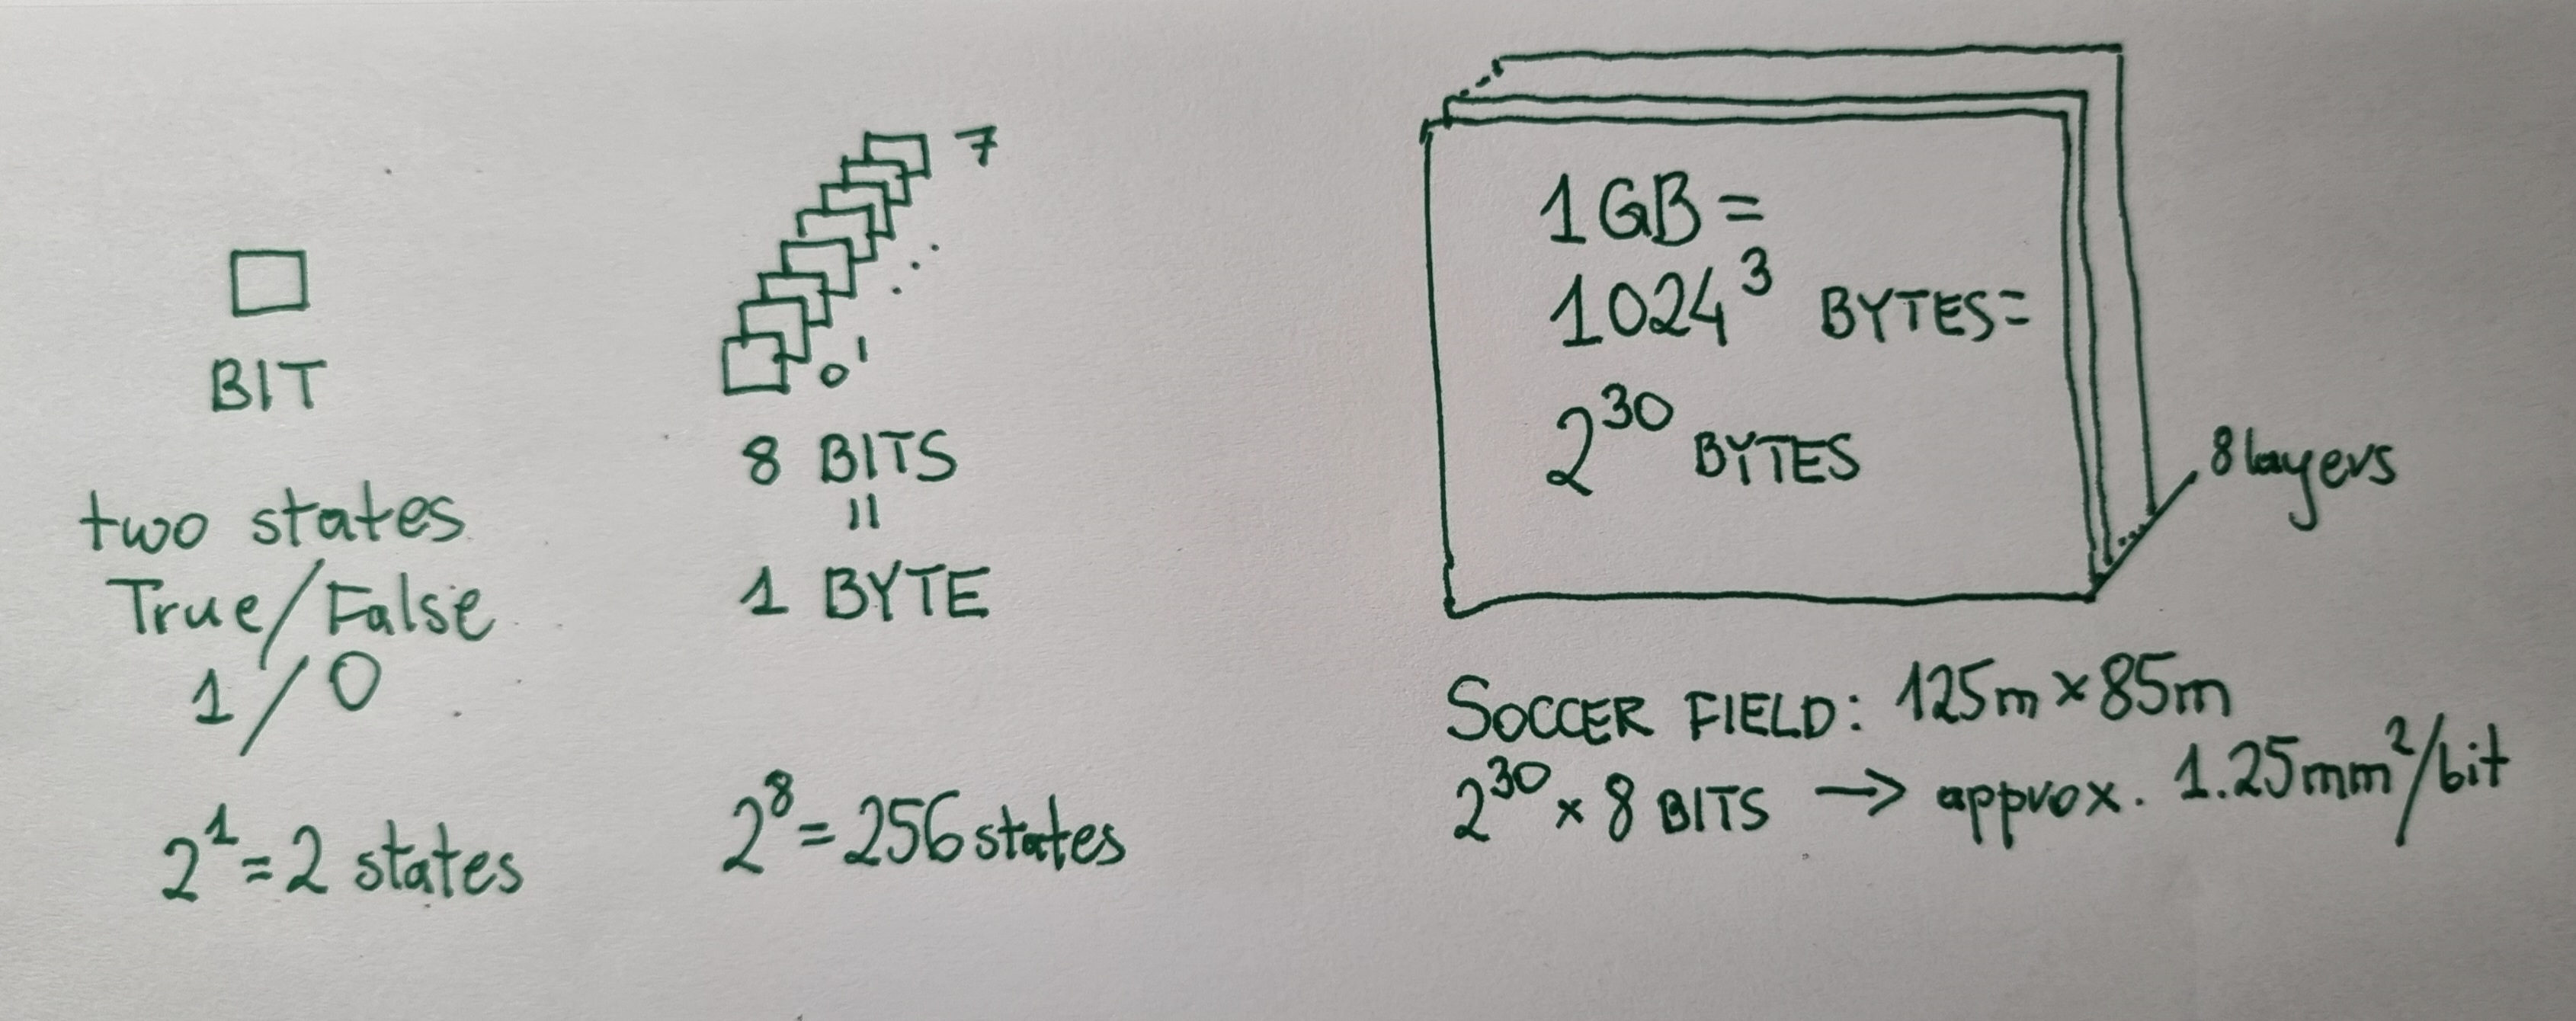 BIT
two states
True/False
1/0
2¹=2 states
7
0 1
8 BITS
=
1 BYTE
2⁸=256 states
1GB=
1024³ BYTES=
2³⁰ BYTES
8 layers
SOCCER FIELD: 125m×85m
2³⁰×8 BITS → approx. 1.25mm²/bit